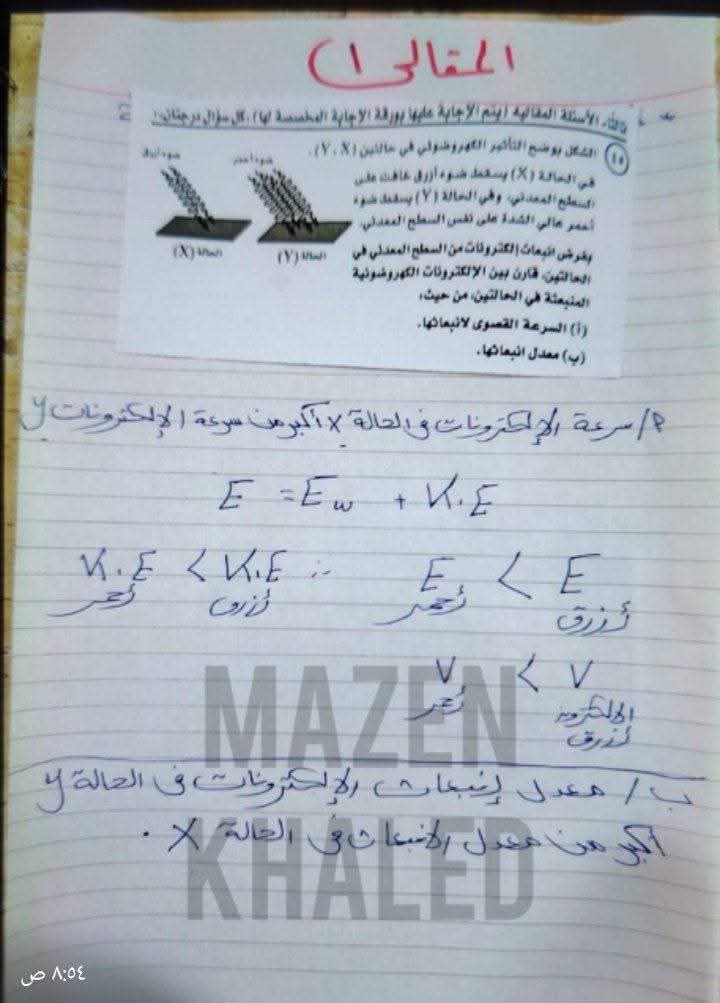 المقالى (١
ثالثًا، الأسئلة المقالية (يتم الإجابة عليها بورقة الإجابة المخصصة لها)، كل سؤال درجتان:
٤٥ الشكل يوضح التأثير الكهروضوئي في حالتين (Y،X).
في الحالة (X) يسقط ضوء أزرق خافت على
السطح المعدني، وفي الحالة (Y) يسقط ضوء
أحمر عالي الشدة على نفس السطح المعدني.
بفرض انبعاث إلكترونات من السطح المعدني في
الحالتين، قارن بين الإلكترونات الكهروضوئية
المنبعثة في الحالتين، من حيث:
(أ) السرعة القصوى لانبعاثها.
(ب) معدل انبعاثها.
ضوء أحمر
ضوء أزرق
الحالة (Y)
الحالة (X)
P/ سرعة الإلكترونات فى الحالة X أكبر من سرعة الإلكترونات y
E = Ew + K.E
K.E < K.E ∴ E < E
أحمر أزرق أحمر أزرق
V < V
أحمر الإلكترون
أزرق
ب/ معدل إنبعاث الإلكترونات فى الحالة y
أكبر من معدل الانبعاث فى الحالة X .
MAZEN
KHALED
٨:٥٤ ص